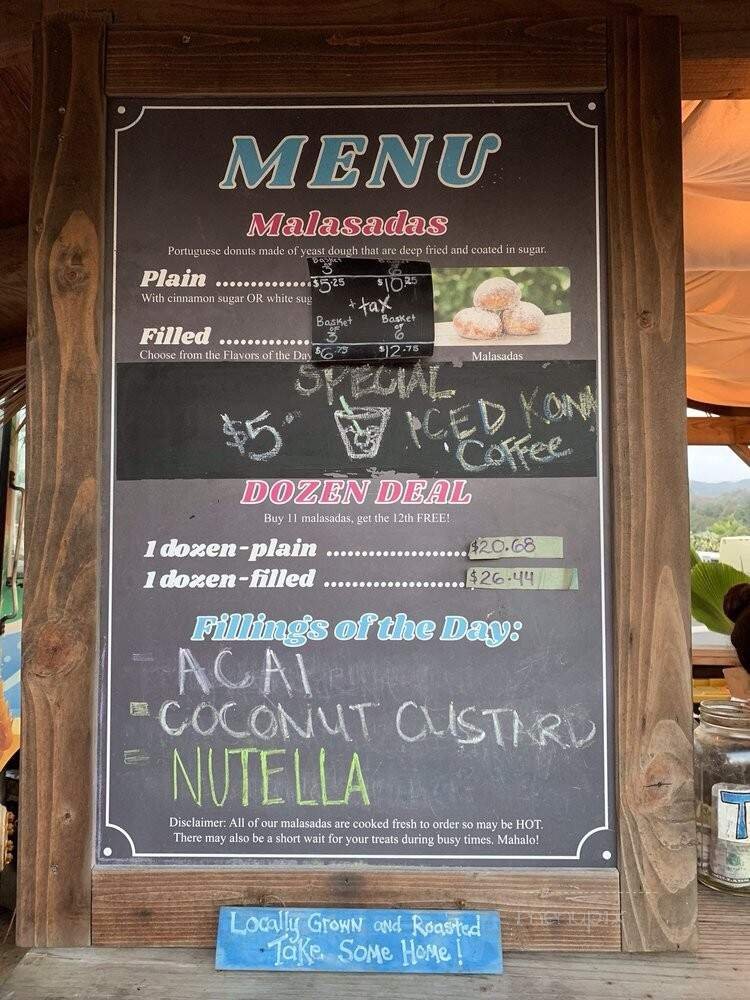 MENU
Malasadas
Portuguese donuts made of yeast dough that are deep fried and coated in sugar.
Plain ..............
With cinnamon sugar OR white sug
Basket
3
$5.25
6
$10.25
+ tax
Basket of 3
Basket of 6
$6.75
$12.75
Filled ..............
Choose from the Flavors of the Day
Malasadas
SPECIAL
$5 ICED KONA
COFFEE
DOZEN DEAL
Buy 11 malasadas, get the 12th FREE!
1 dozen-plain ..................... $20.68
1 dozen-filled ..................... $26.44
Fillings of the Day:
ACAI
COCONUT CUSTARD
NUTELLA
Disclaimer: All of our malasadas are cooked fresh to order so may be HOT.
There may also be a short wait for your treats during busy times. Mahalo!
Locally Grown and Roasted
Take Some Home!
menupix